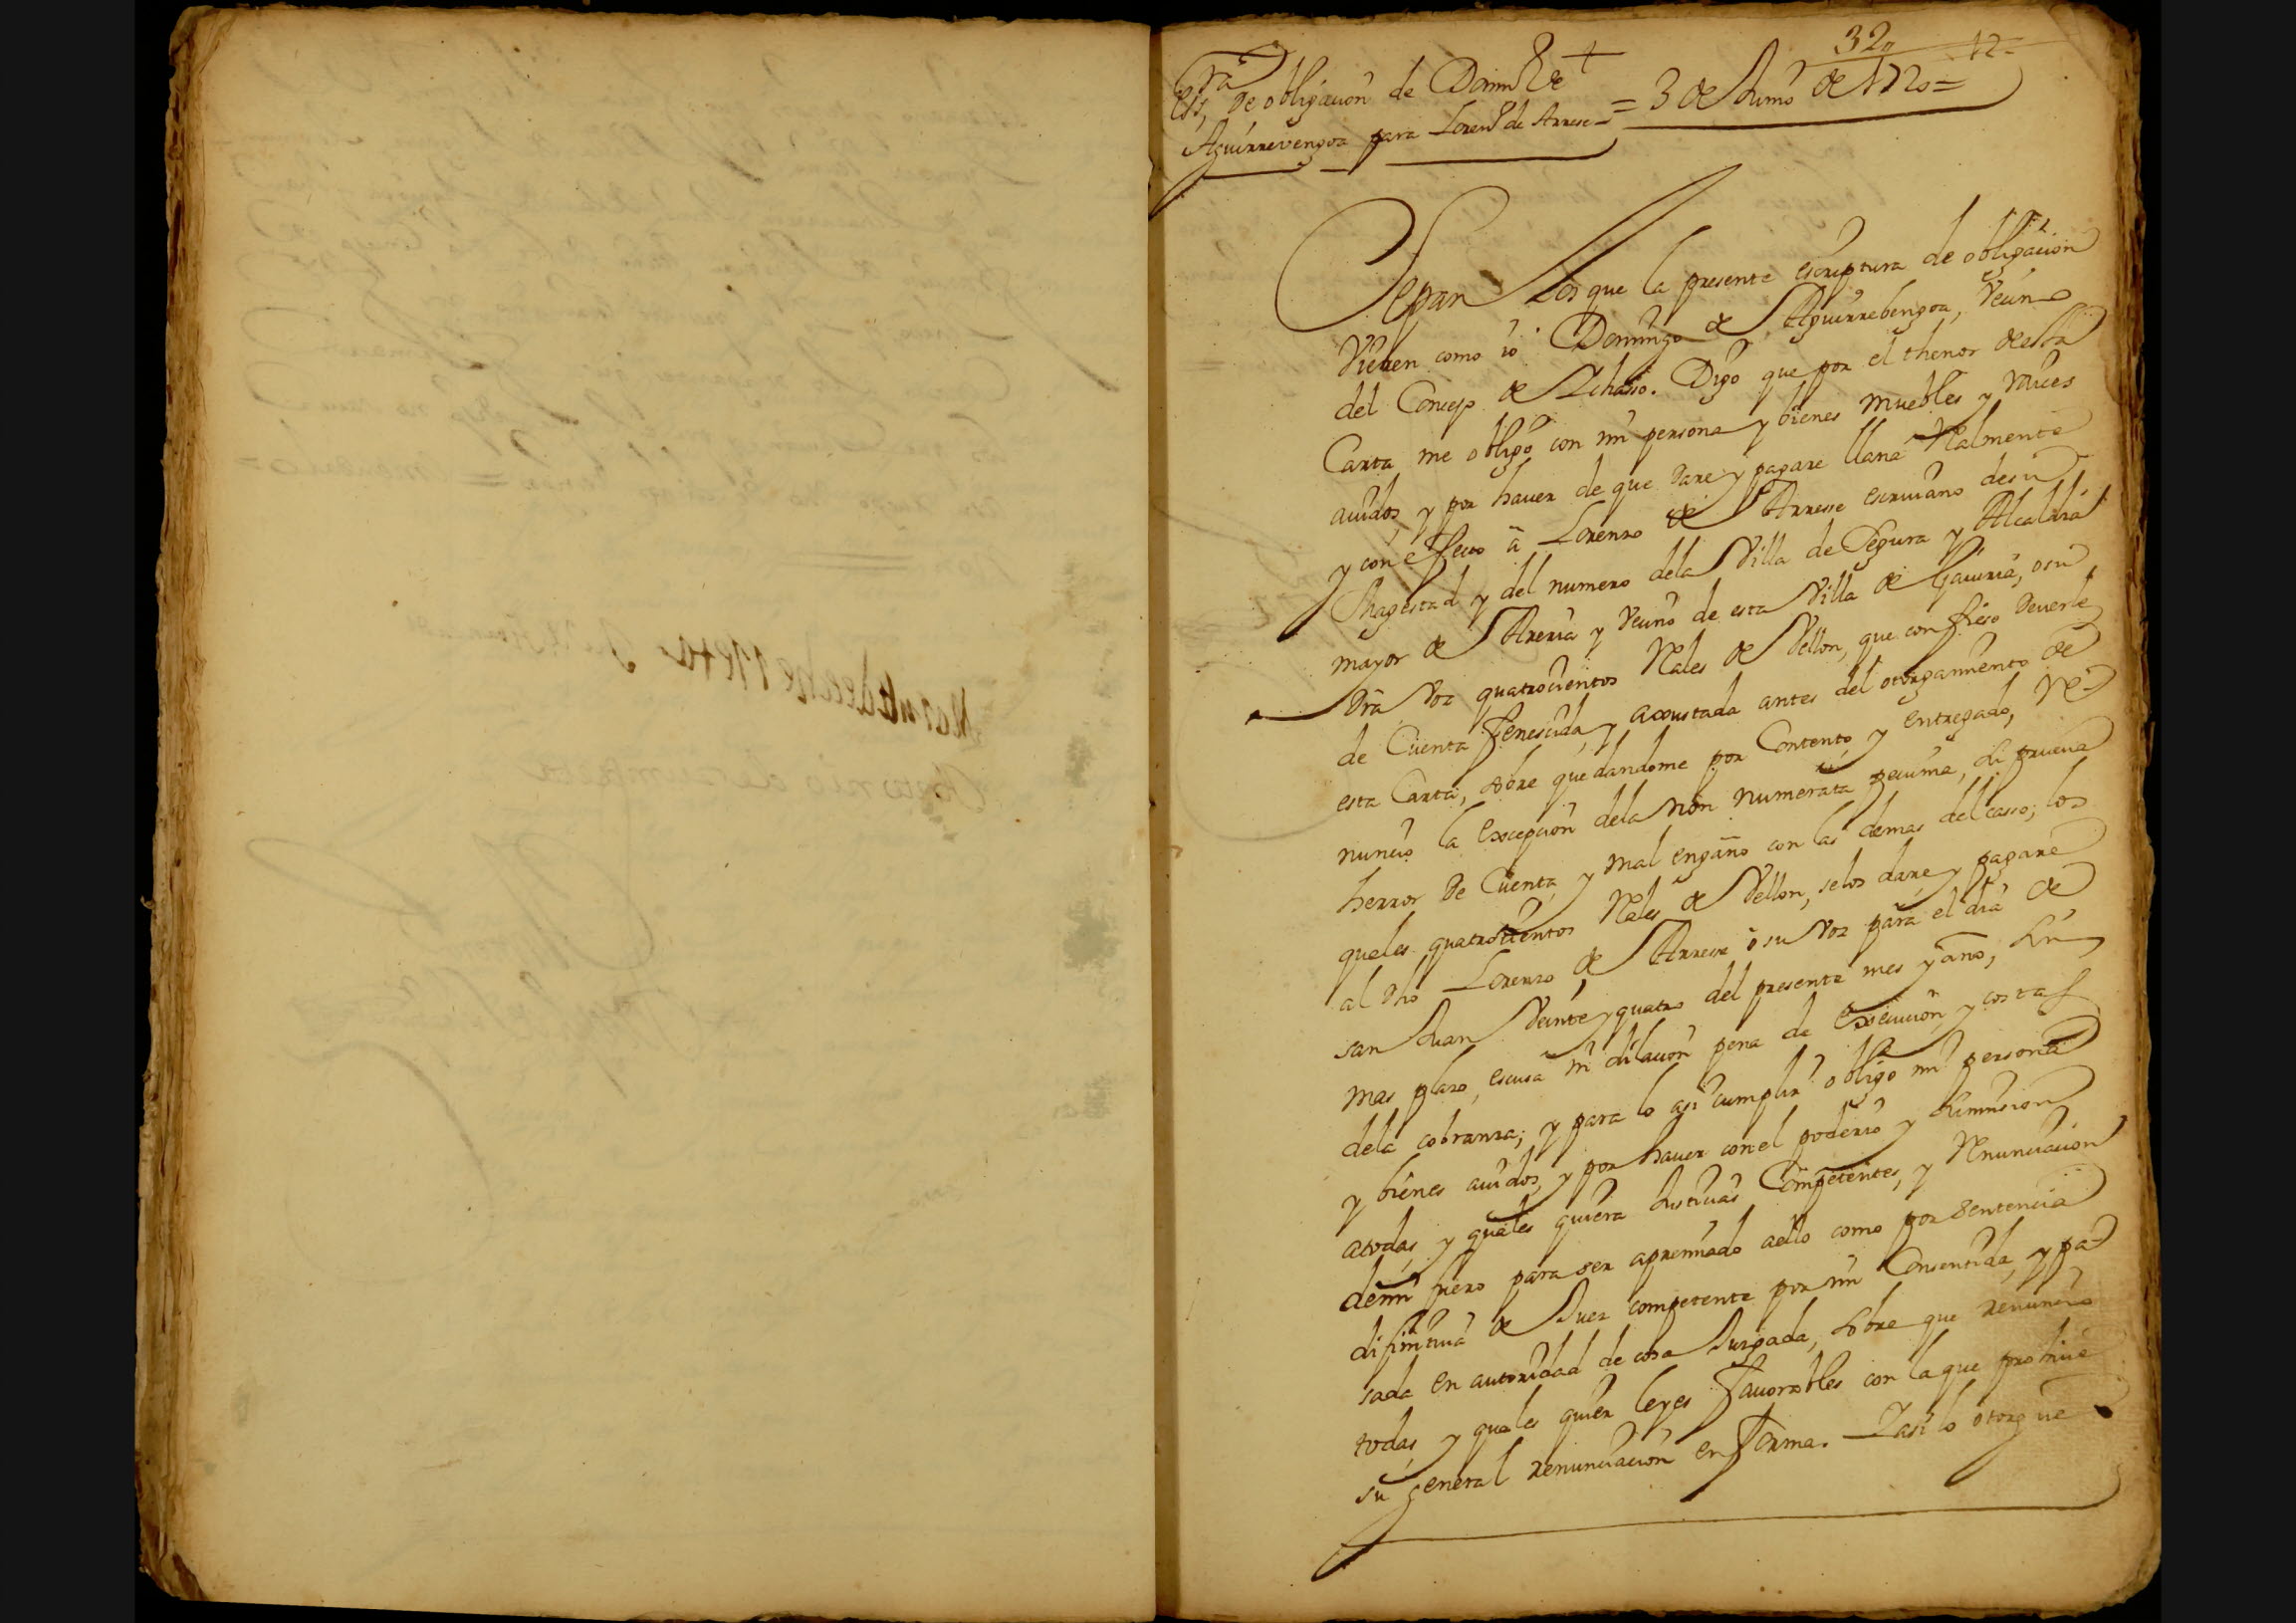 320 12=
Essra de obligacion de Domingo de +
Aguirrevengoa para Lorenzo de Arrese = 3 de Junio de 1720 =
Sepan los que la presente escriptura de obligacion
Vieren como io Domingo de Aguirrebengoa, Vecino
del Concejo de Ichasso. Digo que por el thenor desta
Carta me obligo con mi persona y bienes muebles y raices
auidos, y por hauer de que dare y pagare llana Realmente
y con effecto â Lorenzo de Arresse escriuano de su
Magestad y del numero dela Villa de Segura y Alcaldia
mayor de Areria y Vecino de esta Villa de Gauiria, o su
Voz quatrocientos Rales de Vellon, que confieso deuerle
de Cuenta fenescida, y axustada antes del otorgamiento de
esta Carta, sobre quedandome por Contento, y entregado, Re-
nuncio la excepcion dela non numerata pecunia, su prueua
herror de Cuenta, y mal engaño con las demas del casso; los
quales quatrocientos Rales de Vellon, se los dare, y pagare
al dho Lorenzo de Arresse o su Voz para el dia de
san Juan Veinte y quatro del presente mes y año, sin
mas plazo, escusa ni dilacion pena de execucion, y costas
dela cobranza; y para lo asi cumplir obligo mi persona
y bienes auidos, y por hauer con el poderio y sumision
atodas, y quales quiera Justicias Competentes, y Renunciacion
de mi fuero para ser apremiado aello como por sentencia
difinitiua de Juez competente por mi Consentida, y pa-
sada en autoridad de cosa Juzgada, sobre que renuncio
todas, y quales quier leyes fauorables con la que prohiue
su general renunciacion en forma. Y asi lo otorgue